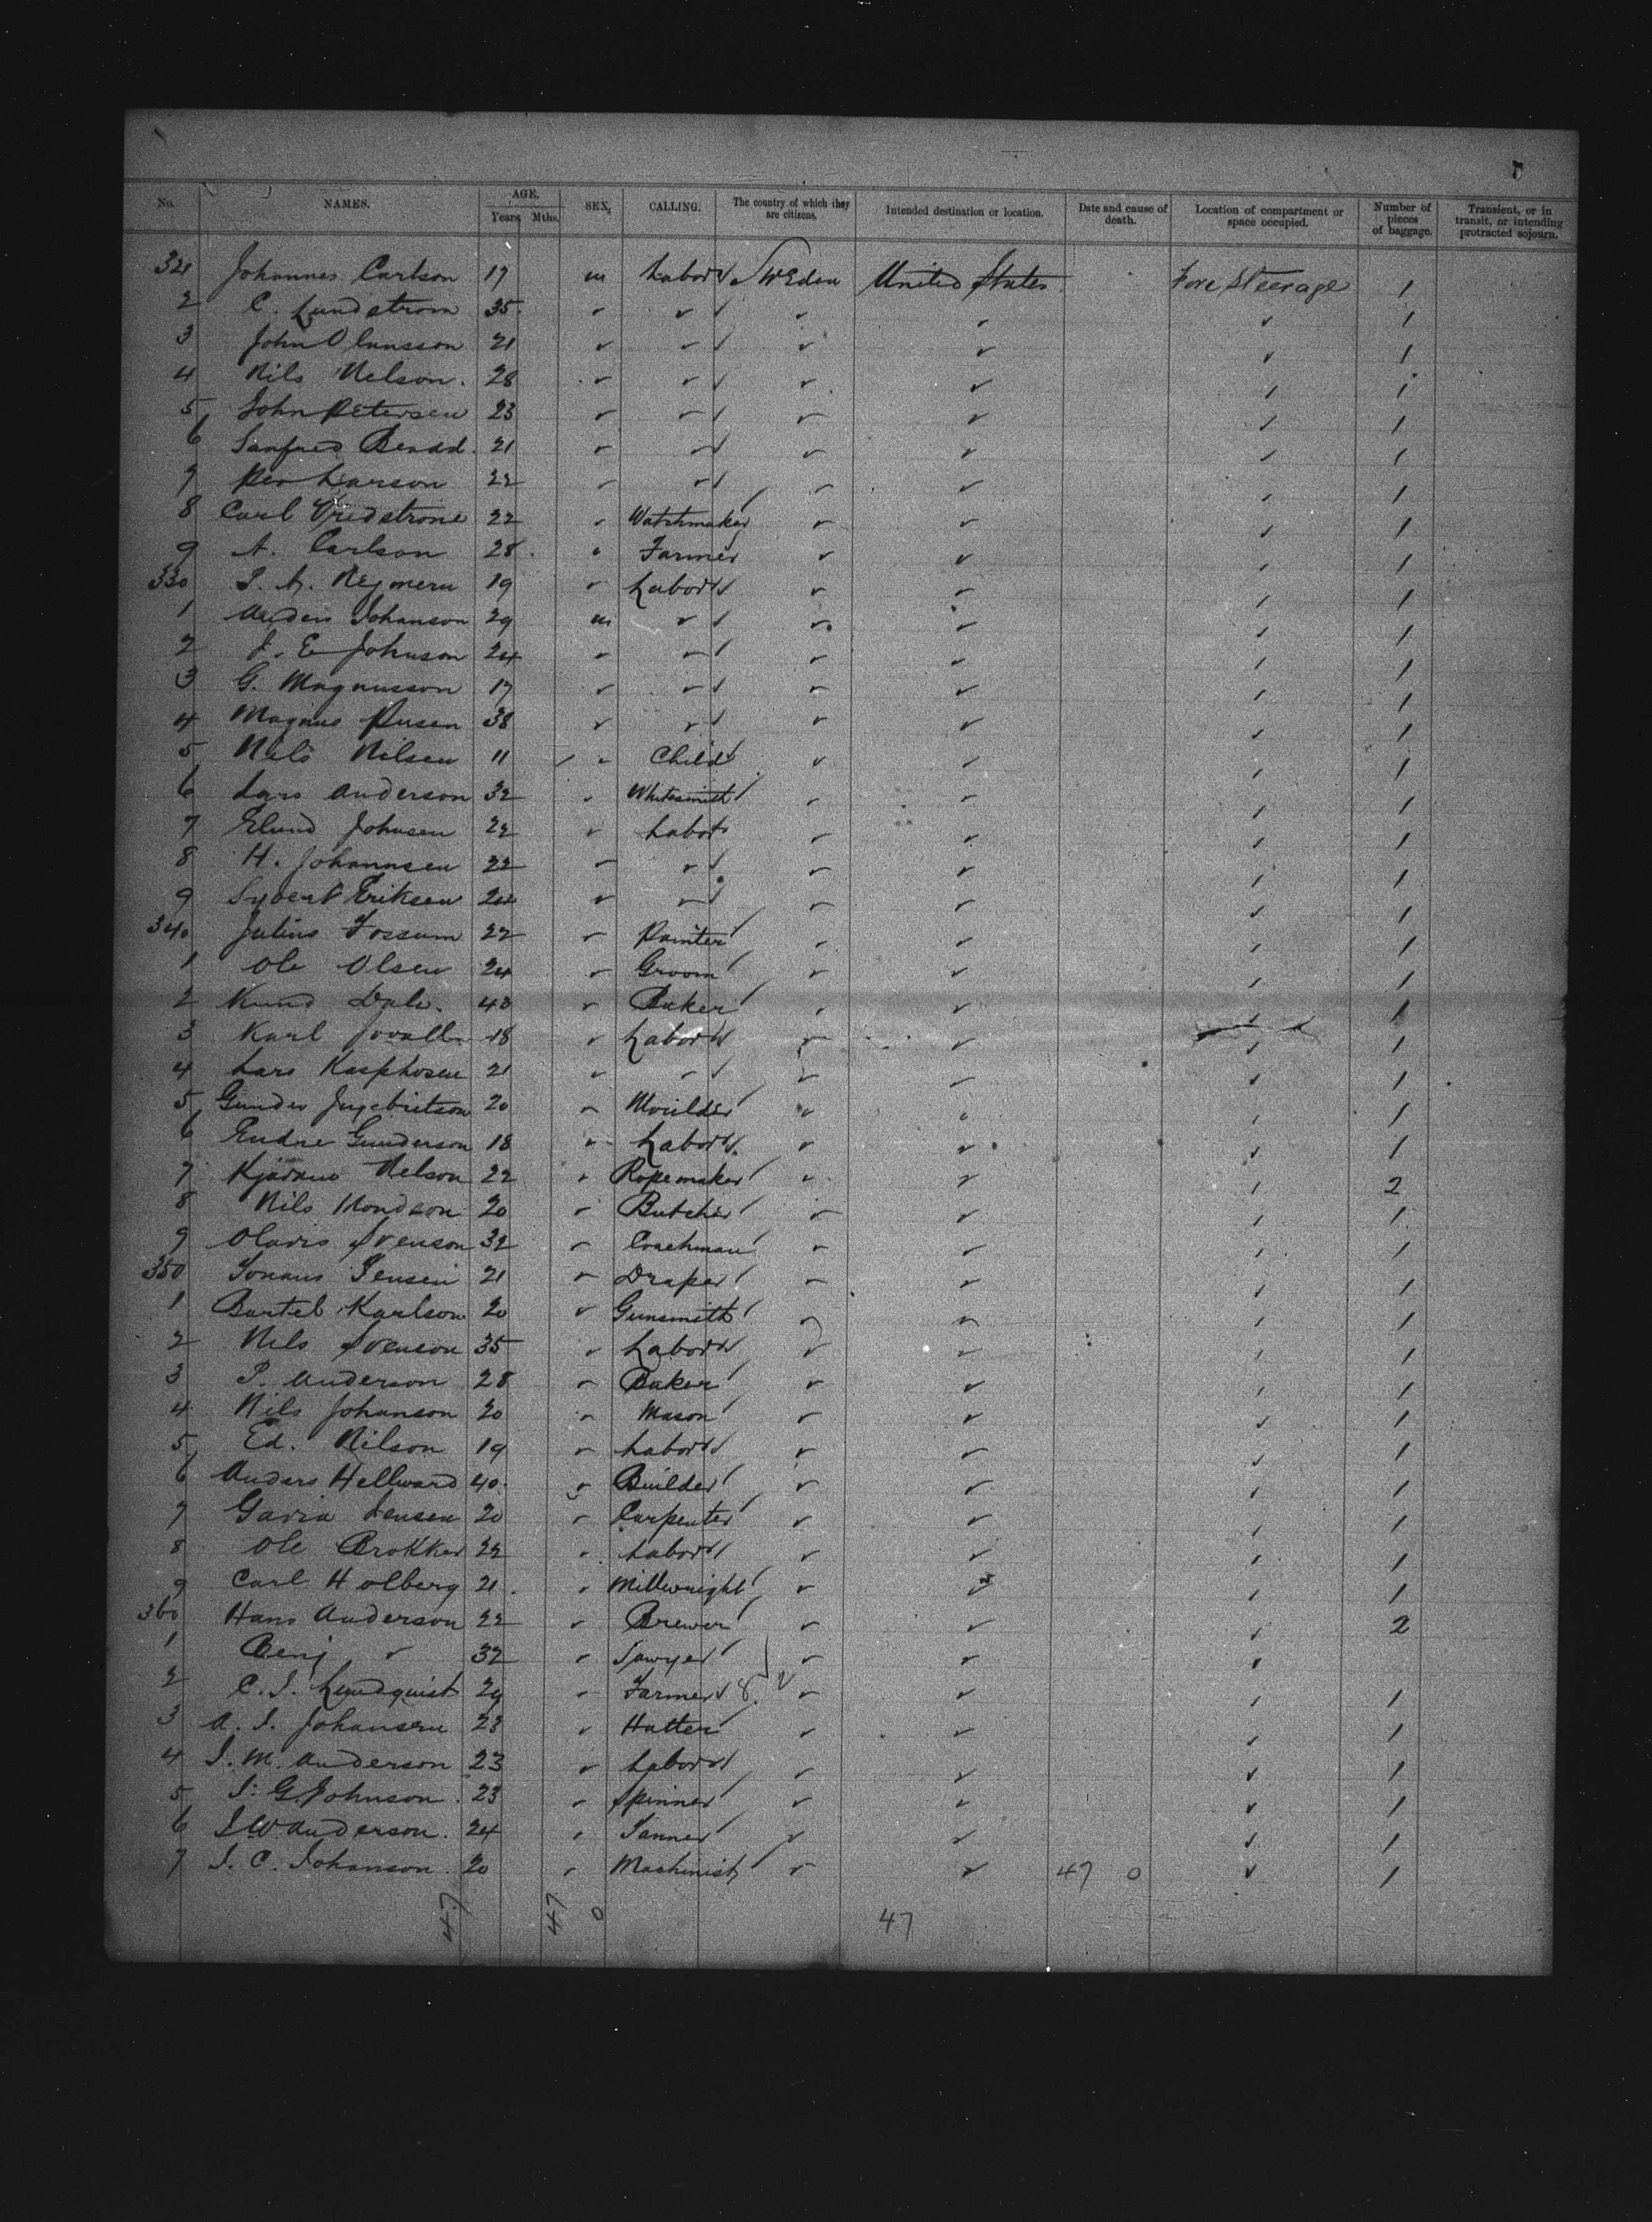 5
No. NAMES. AGE. Years Mths. SEX, CALLING. The country of which they are citizens. Intended destination or location. Date and cause of death. Location of compartment or space occupied. Number of pieces of baggage. Transient, or in transit, or intending protracted sojourn.
321 Johannes Carlson 17 m Labor ✓ Sweden United States Fore Steerage 1
2 C. Lundstrom 35 ✓ ✓ ✓ ✓ ✓ ✓ 1
3 John 21 ✓ ✓ ✓ ✓ ✓ ✓ 1
4 Nils Nelson. 28 ✓ ✓ ✓ ✓ ✓ ✓ 1
5 John Petersen 23 ✓ ✓ ✓ ✓ ✓ ✓ 1
6 Sanfred 21 ✓ ✓ ✓ ✓ ✓ ✓ 1
7 Per Larson 22 ✓ ✓ ✓ ✓ ✓ ✓ 1
8 Carl 22 ✓ Watchmaker ✓ ✓ ✓ 1
9 A. Carlson 28 ✓ Farmer ✓ ✓ ✓ 1
330 19 ✓ Labor ✓ ✓ ✓ ✓ 1
1 Anders Johanson 29 m ✓ ✓ ✓ ✓ ✓ 1
2 J. E Johnson 24 ✓ ✓ ✓ ✓ ✓ ✓ 1
3 G. Magnusson 17 ✓ ✓ ✓ ✓ ✓ ✓ 1
4 Magnus 38 ✓ ✓ ✓ ✓ ✓ ✓ 1
5 Nils Nilsen 11 ✓ Child ✓ ✓ ✓ 1
6 Lars Anderson 32 ✓ Whitesmith ✓ ✓ ✓ 1
7 Elund Johnsen 22 ✓ Labor ✓ ✓ ✓ 1
8 H. Johannsen 22 ✓ ✓ ✓ ✓ ✓ ✓ 1
9 Syvert Eriksen 24 ✓ ✓ ✓ ✓ ✓ ✓ 1
340 Julius Fossum 22 ✓ Painter ✓ ✓ ✓ 1
1 Ole Olsen 24 ✓ Groom ✓ ✓ ✓ 1
2 Dale. 40 ✓ Baker ✓ ✓ ✓ 1
3 Karl 18 ✓ Labor ✓ ✓ ✓ ✓ 1
4 Lars 21 ✓ ✓ ✓ ✓ ✓ ✓ 1
5 Gunder Ingebritson 20 ✓ Moulder ✓ ✓ ✓ 1
6 Endre Gunderson 18 ✓ Labor ✓ ✓ ✓ ✓ 1
7 Nelson 22 ✓ Ropemaker ✓ ✓ ✓ 2
8 Nils Mondson 20 ✓ Butcher ✓ ✓ ✓ 1
9 Svenson 32 ✓ Coachman ✓ ✓ ✓ 1
350 Jensen 21 ✓ Draper ✓ ✓ ✓ 1
1 Bartel Karlson 20 ✓ Gunsmith ✓ ✓ ✓ 1
2 Nels Svenson 35 ✓ Labor ✓ ✓ ✓ ✓ 1
3 P. Anderson 28 ✓ Baker ✓ ✓ ✓ 1
4 Nils Johanson 20 ✓ Mason ✓ ✓ ✓ 1
5 Ed. Nilson 19 ✓ Labor ✓ ✓ ✓ ✓ 1
6 Anders Hellward 40 ✓ Builder ✓ ✓ ✓ 1
7 Jensen 20 ✓ Carpenter ✓ ✓ ✓ 1
8 Ole Brokker 22 ✓ Labor ✓ ✓ ✓ ✓ 1
9 Carl Holberg 21 ✓ Millwright ✓ ✓ ✓ 1
360 Hans Anderson 22 ✓ Brewer ✓ ✓ ✓ 2
1 Benj ✓ 32 ✓ Sawyer ✓ ✓ ✓
2 C. J. Lundquist 29 ✓ Farmer ✓ ✓ ✓ ✓ 1
3 A. J. Johansen 23 ✓ Hatter ✓ ✓ ✓ 1
4 J. M. Anderson 23 ✓ Labor ✓ ✓ ✓ ✓ 1
5 J. G. Johnson. 23 ✓ Spinner ✓ ✓ ✓ 1
6 J. W. Anderson. 24 ✓ Tanner ✓ ✓ ✓ 1
7 J. C. Johanson. 20 ✓ Machinist ✓ ✓ 47 0 ✓ 1
47 47 0 47